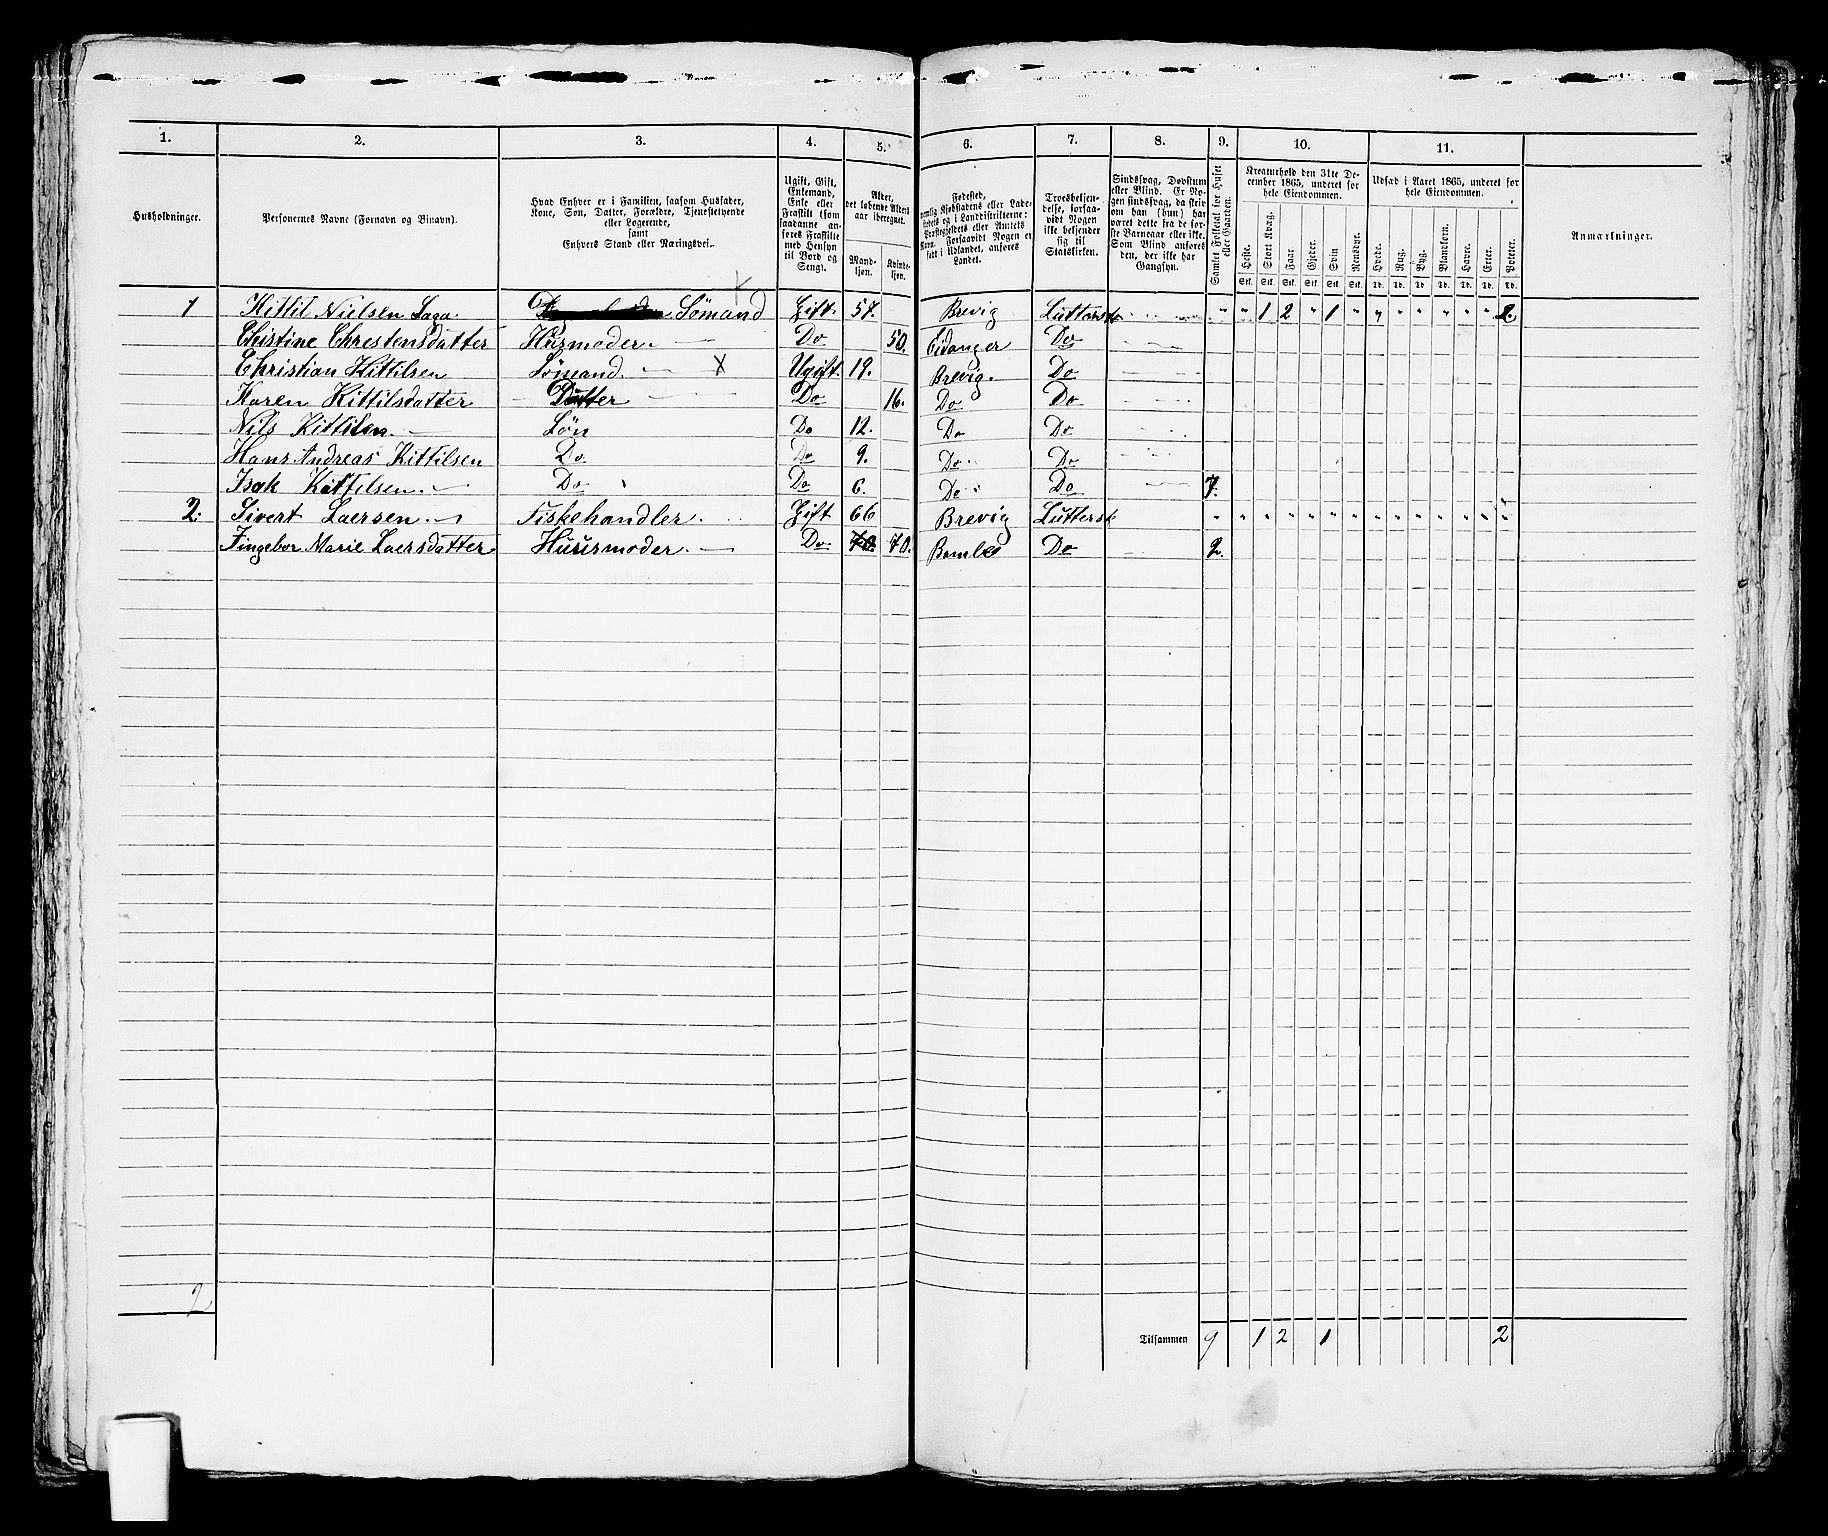 1. 2. 3. 4. 5. 6. 7. 8. 9. 10. 11.
Husholdninger.
Personernes Navne (Fornavn og Binavn).
Hvad Enhver er i Familien, saasom Husfader,
Kone, Søn, Datter, Forældre, Tjenestetyende
eller Logerende,
samt
Enhvers Stand eller Næringsvei.
Ugift, Gift,
Enkemand,
Enke eller
Fraskilt (som
saadanne an-
føres Fraskilte
med Hensyn
til Bord og
Seng).
Alder,
det løbende Alders-
aar iberegnet.
Mand-
kjøn.
Kvinde-
kjøn.
Fødested,
nemlig Kjøbstadens eller Lade-
stedets og i Landdistrikterne:
Præstegjeldets eller Amtets
Navn. Forsaavidt Nogen er
født i Udlandet, anføres
Landet.
Troesbekjen-
delse, forsaa-
vidt Nogen
ikke bekjender
sig til
Statskirken.
Sindssvag, Døvstum
eller Blind. Er No-
gen sindssvag, da skriv
om han (hun) har
været dette fra de før-
ste Barneaar eller ikke.
Som Blind anføres
den, der ikke har
Gangsyn.
Samlet Folketal for Huset
eller Gaarden.
Kreaturhold den 31te De-
cember 1865, underet for
hele Eiendommen.
Heste. Stort Kvæg. Faar. Gjeder. Svin Rensdyr.
Stk. Stk. Stk. Stk. Stk. Stk.
Udsæd i Aaret 1865, underet for
hele Eiendommen.
Hvede. Rug. Byg. Blandkorn. Havre. Erter. Poteter.
Td. Td. Td. Td. Td. Td. Td.
Anmærkninger.
1 Kittil Nielsen Saga Sømand Gift. 57. Brevig Luttersk " " 1 2 " 1 " " " " " " " 2.
Christine Chrestensdatter Husmoder. Do 50. Eidanger Do
Christian Kittilsen Sømand X Ugift. 19. Brevig. Do
Karen Kittilsdatter Datter Do 16. Do Do
Nils Kittilsen Søn Do 12. Do Do
Hans Andreas Kittilsen Do Do 9. Do Do
Isak Kittilsen. Do Do 6. Do Do 7.
2. Sivert Laersen. Fiskehandler. Gift 66 Brevig Luttersk " " " " " " " " " " " " " "
Fingebor Marie Laersdatter Huusmoder. Do 70. 70. Bamle Do 2.
2
Tilsammen 9 1 2 1 2